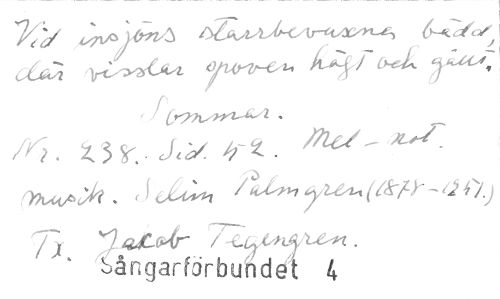 Vid insjöns starrbevuxna bädd,
där visslar spoven högt och gällt.
Sommar.
Nr. 238. Sid. 42. Mel-not.
musik. Selim Palmgren (1878-1951.)
Tx. Jacob Tegengren.
Sångarförbundet 4